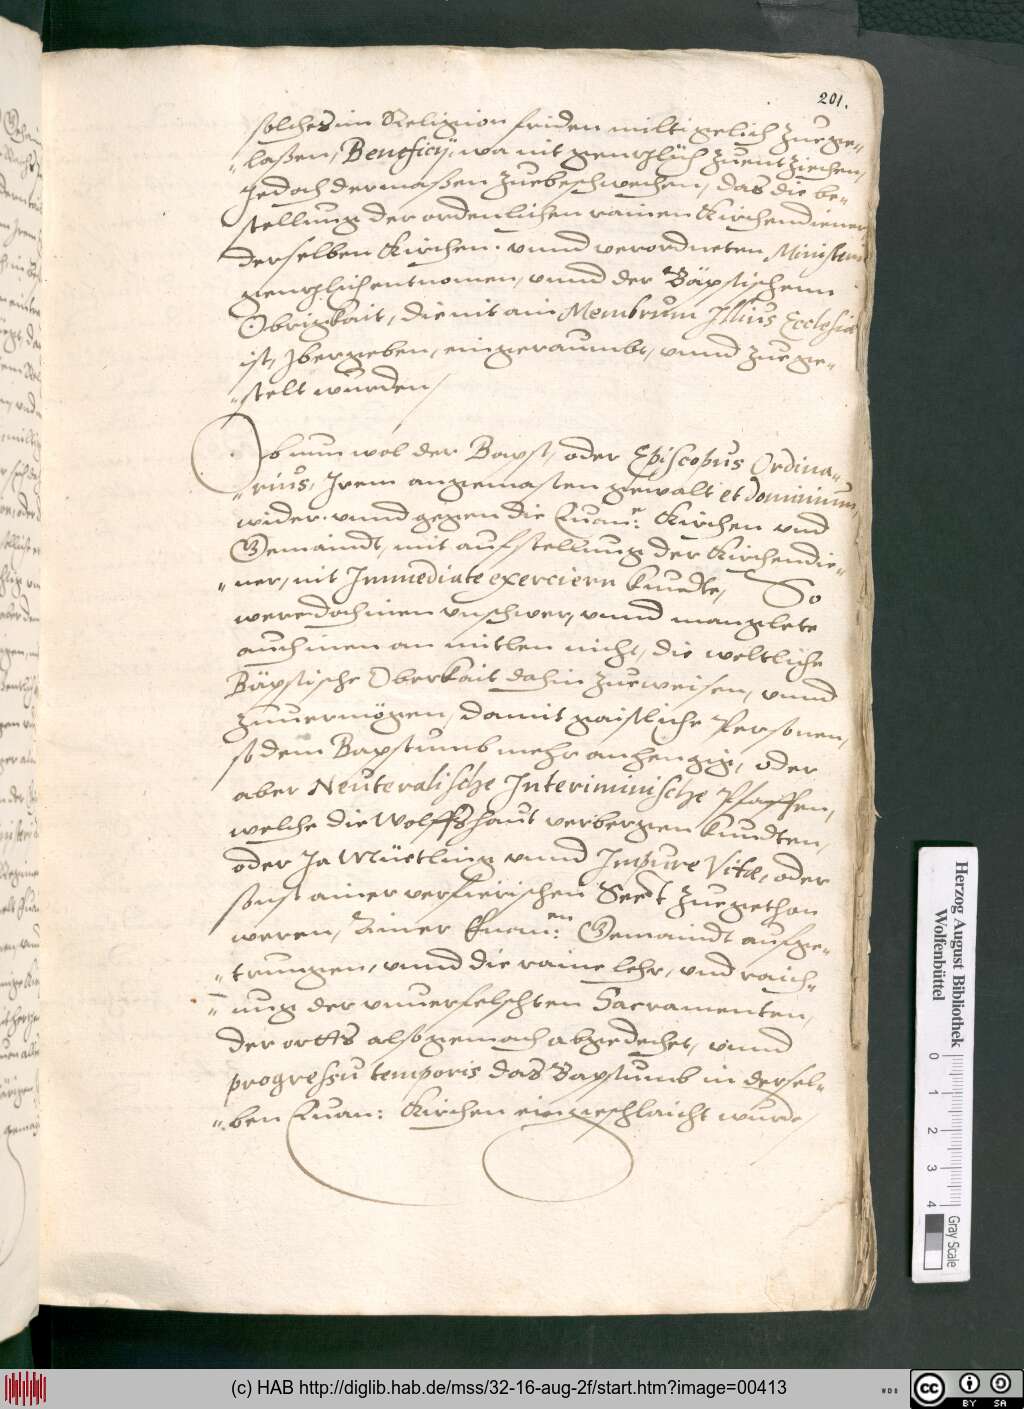 201.
solches im Religion friden miltigelich zuege-
-laßen, Beneficÿ, wa nit genzlich zuentziechen,
Jedoch dermaßen zuebeschwechen, das die be-
stellung der ordenlichen rainen Kirchendiener
derselben Kirchen. vnnd verordneten Ministerii
genzlich entnomen, vnnd der Bäpstischenn
Obrigkait, die nit ain Membrum Illius Ecclesiæ
ist, Jbergeben, eingeraumbt, vnnd zuege-
-stelt wurden,
Ob nun wol der Bapst, oder Episcopus Ordina-
-rius, Jrem angemasten gewalt et dominium,
wider. vnnd gegen die Euan:e Kirchen vnd
Gemaindt, mit aufstellung der Kirchendie-
-ner, nit Immediate exerciern kundte, So
were doch inen vnschwer, vnnd manglete
auch inen an mitlen nicht, die weltliche
Bäpstische Oberkait dahin zueweisen, vnnd
zuuermögen, damit gaistliche Personen,
so dem Bapstumb mehr anhengig, oder
aber Neuteralische Interiminische Pfaffen,
welche die Wolffshaut verbergen kundten,
oder Ja Müetling vnnd Impure Vitæ, oder
sonst ainer verfierischen Sect zuegethon
weren, Ainer Euan:en Gemaindt aufge-
-trungen, vnnd die raine lehr, vnd raich-
-ung der vnuerfelschten Sacramenten,
der ortts also gemach abgedecket, vnnd
progressu temporis das Bapstumb in dersel-
-ben Euan: Kirchen eingeschlaicht wurde
Herzog August Bibliothek
Wolfenbüttel
0 1 2 3 4
Gray Scale
(c) HAB http://diglib.hab.de/mss/32-16-aug-2f/start.htm?image=00413
WDB
cc BY SA